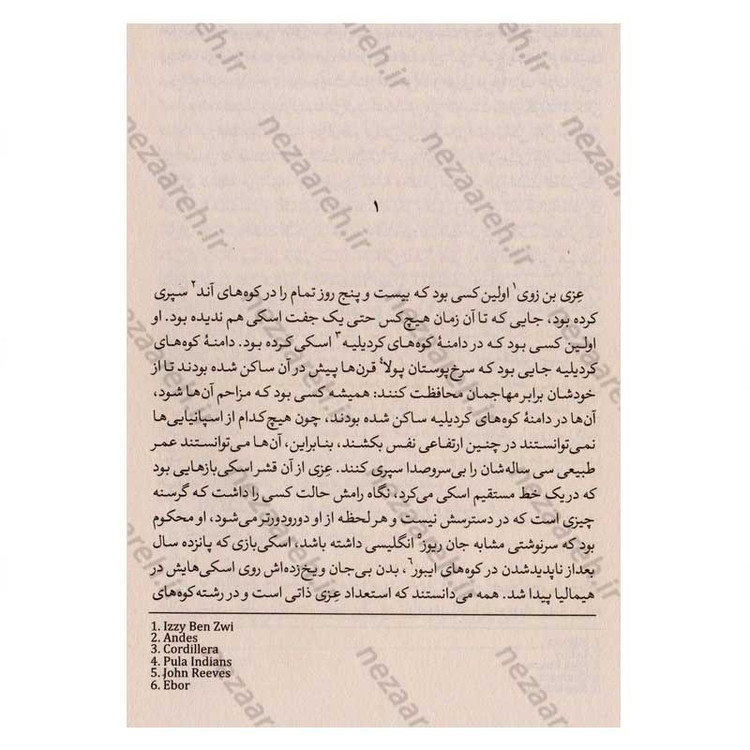 ۱
عِزی بن زوی۱ اولین کسی بود که بیست و پنج روز تمام را در کوه‌های آند۲ سپری
کرده بود، جایی که تا آن زمان هیچ‌کس حتی یک جفت اسکی هم ندیده بود. او
اولین کسی بود که در دامنهٔ کوه‌های کردیلیه۳ اسکی کرده بود. دامنهٔ کوه‌های
کردیلیه جایی بود که سرخ‌پوستان پولا۴ قرن‌ها پیش در آن ساکن شده بودند تا از
خودشان برابر مهاجمان محافظت کنند: همیشه کسی بود که مزاحم آن‌ها شود،
آن‌ها در دامنهٔ کوه‌های کردیلیه ساکن شده بودند، چون هیچ‌کدام از اسپانیایی‌ها
نمی‌توانستند در چنین ارتفاعی نفس بکشند، بنابراین، آن‌ها می‌توانستند عمر
طبیعی سی ساله‌شان را بی‌سروصدا سپری کنند. عِزی از آن قشر اسکی‌بازهایی بود
که در یک خط مستقیم اسکی می‌کرد، نگاه رامش حالت کسی را داشت که گرسنه
چیزی است که در دسترسش نیست و هر لحظه از او دورودورتر می‌شود، او محکوم
بود که سرنوشتی مشابه جان ریوز۵ انگلیسی داشته باشد، اسکی‌بازی که پانزده سال
بعد از ناپدیدشدن در کوه‌های ایبور۶، بدن بی‌جان و یخ‌زده‌اش روی اسکی‌هایش در
هیمالیا پیدا شد. همه می‌دانستند که استعداد عِزی ذاتی است و در رشته‌کوه‌های
1. Izzy Ben Zwi
2. Andes
3. Cordillera
4. Pula Indians
5. John Reeves
6. Ebor
nezaareh.ir
nezaareh.ir
nezaareh.ir
nezaareh.ir
nezaareh.ir
nezaareh.ir
nezaareh.ir
nezaareh.ir
nezaareh.ir
nezaareh.ir
nezaareh.ir